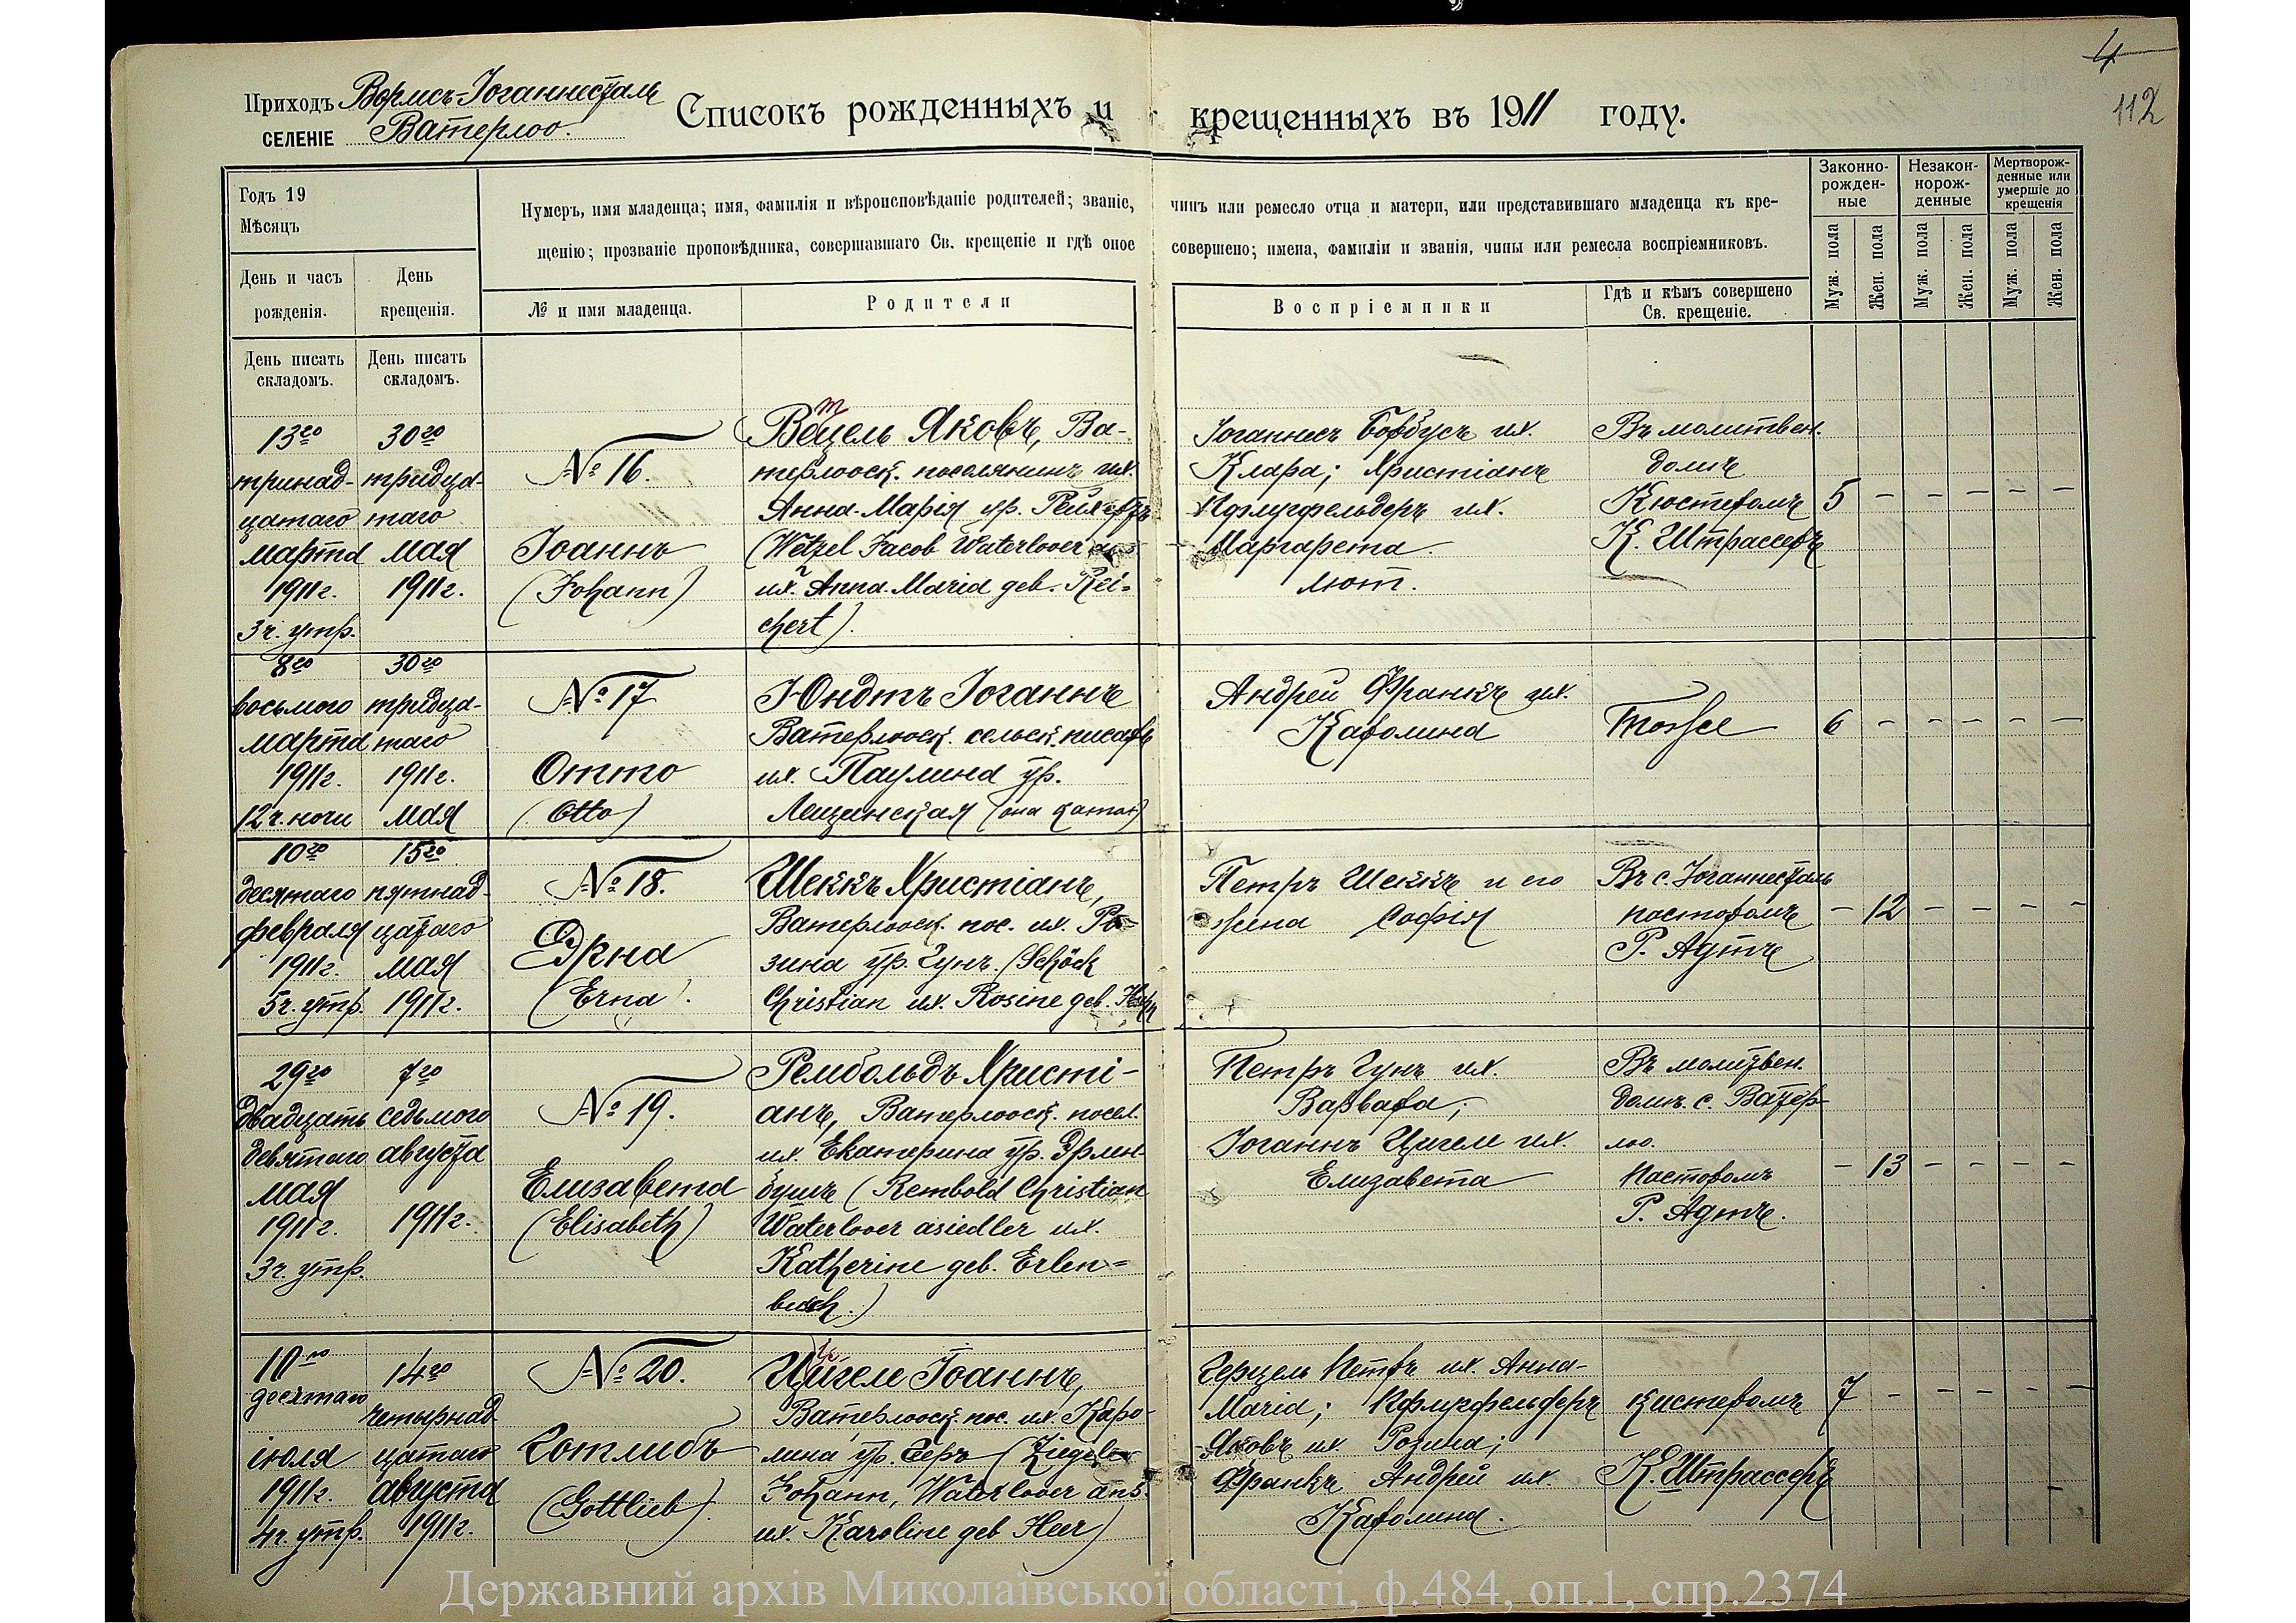 4
112
Приходъ Вормсъ-Іоганнесталь
СЕЛЕНІЕ Ватерлоо.
Списокъ рожденныхъ и крещенныхъ въ 1911 году.
Годъ 19
Мѣсяцъ
День и часъ
рожденія.
День
крещенія.
Нумеръ, имя младенца; имя, фамилія и вѣроисповѣданіе родителей; званіе, чинъ или ремесло отца и матери, или представившаго младенца къ кре-
щенію; прозваніе проповѣдника, совершавшаго Св. крещеніе и гдѣ оное совершено; имена, фамиліи и званія, чины или ремесла воспріемниковъ.
№ и имя младенца.
Родители
Воспріемники
Гдѣ и кѣмъ совершено
Св. крещеніе.
Законно-
рожден-
ные
Незакон-
норож-
денные
Мертворож-
денные или
умершіе до
крещенія
Муж. пола
Жен. пола
Муж. пола
Жен. пола
Муж. пола
Жен. пола
День писать
складомъ.
День писать
складомъ.
13го
тринад-
цатаго
марта
1911г.
3ч. утр.
30го
тридца-
таго
мая
1911г.
№ 16.
Іоаннъ
(Johann)
Вецель Яковъ, Ва-
т
терлооск. поселянинъ их.
Анна-Марія ур. Рейхертъ
(Wetzel Jacob Waterlooer
их. Anna-Maria geb. Rei-
chert).
Іоганнесъ Борбусъ их.
Клара; Христіанъ
Пфлугфельдеръ их.
Маргарета.
лют.
Въ молитвен.
домѣ
Кюстеромъ
К. Штрассеръ
5 - - - - -
8го
восьмого
марта
1911г.
12ч. ночи
30го
тридца-
таго
1911г.
мая
№ 17
Отто
(Otto)
Юндтъ Іоганнъ
Ватерлооск. сельск. писарь
их. Паулина ур.
Лещинская (она катол)
Андрей Франкъ их.
Каролина
6 - - - - -
10го
десятаго
февраля
1911г.
5ч. утр.
15го
пятнад-
цатаго
мая
1911г.
№ 18.
Эрна
(Erna).
Шеккъ Христіанъ,
Ватерлооск. пос. их. Ро-
зина ур. Гунъ. (Schöck
Christian их. Rosine geb.
Петръ Шеккъ и его
жена Софія
Въ с. Іоганнесталь
пасторомъ
Р. Адтъ
- 12 - - - -
29го
двадцать
девятаго
мая
1911г.
3ч. утр.
7го
седьмого
августа
1911г.
№ 19.
Елизавета
(Elisabeth)
Рембольдъ Христі-
анъ, Ватерлооск. посел.
их. Екатерина ур. Эрлен-
бушъ (Rembold Christian
Waterlooer asiedler их.
Katherine geb. Erlen-
busch.)
Петръ Гунъ их.
Варвара;
Іоганнъ Цигеле их.
Елизавета
Въ молитвен.
домѣ. с. Ватер-
лоо.
Пасторомъ
Р. Адтъ.
- 13 - - - -
10го
десятаго
іюля
1911г.
4ч. утр.
14го
четырнад
цатаго
августа
1911г.
№ 20.
Готлибъ
(Gottlieb).
Цигеле Іоаннъ,
Ватерлооск. пос. их. Каро-
лина ур. Гееръ (Ziegele
Johann, Waterlooer ans.
их. Karoline geb Heer)
Герцель Петръ их. Анна-
Maria; Пфлугфельдеръ
Яковъ их. Розина;
Франкъ Андрей их.
Каролина.
кистеромъ
К. Штрассеръ
7 - - - - -
Державний архів Миколаївської області, ф.484, оп.1, спр.2374